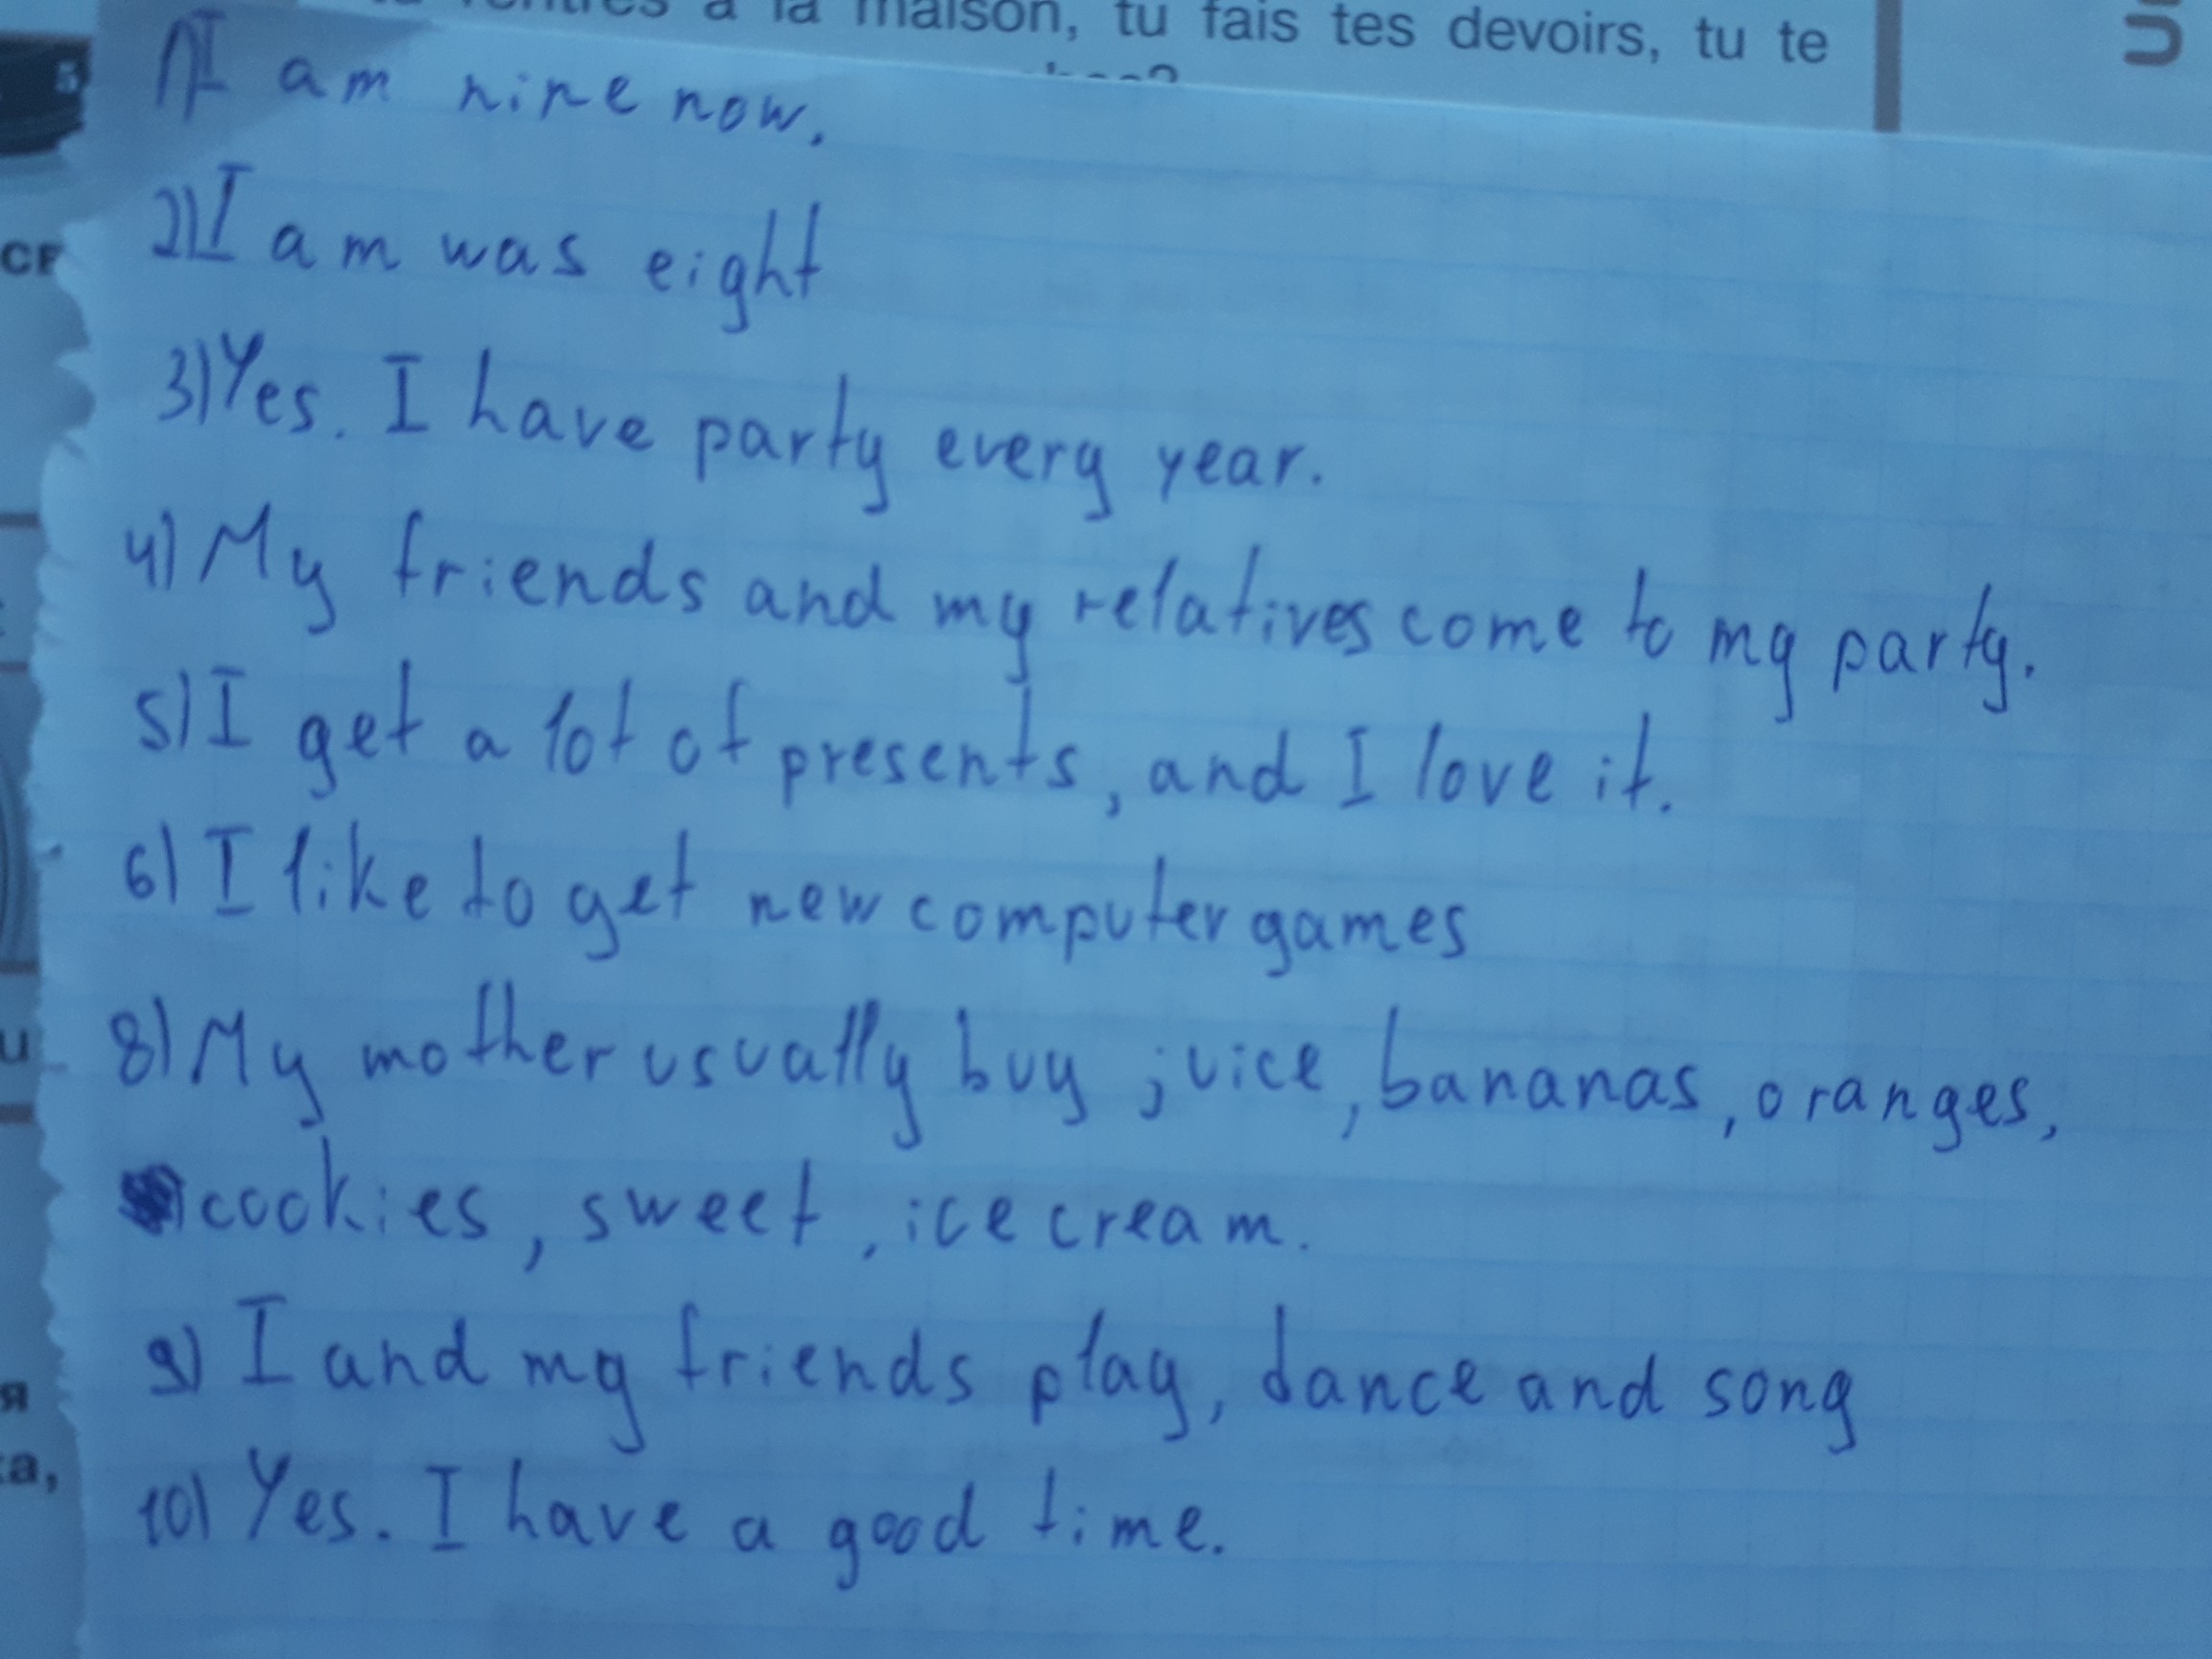 à la maison, tu fais tes devoirs, tu te
1) I am nine now.
2) I am was eight
3) Yes. I have party every year.
4) My friends and my relatives come to my party.
5) I get a lot of presents, and I love it.
6) I like to get new computer games
8) My mother usually buy juice, bananas, oranges,
cookies, sweet, ice cream.
9) I and my friends play, dance and song
10) Yes. I have a good time.